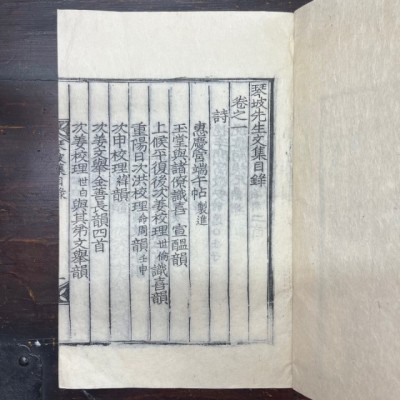 琴坡先生文集目錄
卷之一
詩
惠慶宮端午帖 製進
玉堂與諸僚識喜 宣醞韻
上候平復後次姜校理 世倫 識喜韻
重陽日次洪校理 命周 韻 壬申
次申校理 韻
次姜文擧金吾長韻四首
次姜校理 世白 與其弟文擧韻